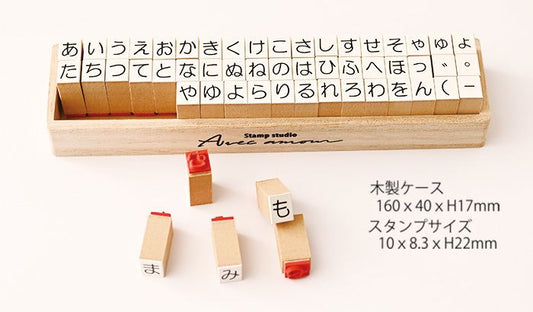 あいうえおかきくけこさしすせそやゆよ
たちつてとなにぬねのはひふへほっ゛゜
やゆよらりるれろわをん(ー
Stamp studio
Avec amour
も
まみ
木製ケース
160 x 40 x H17mm
スタンプサイズ
10 x 8.3 x H22mm